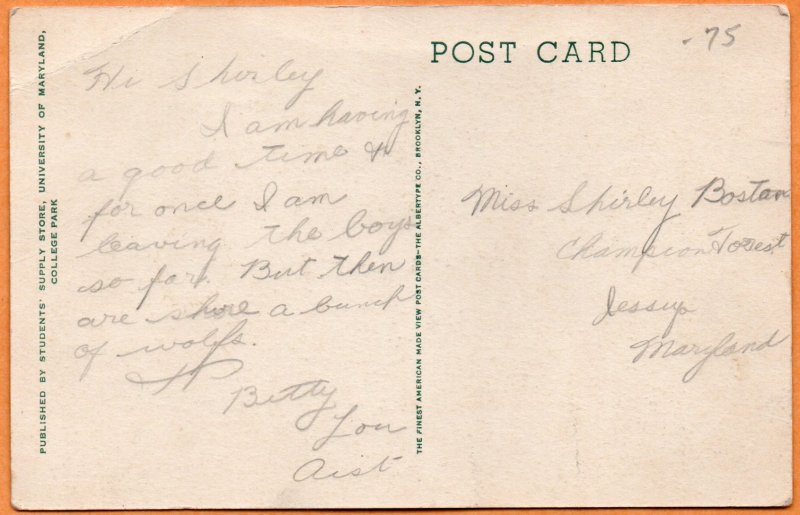 PUBLISHED BY STUDENTS' SUPPLY STORE, UNIVERSITY OF MARYLAND,
COLLEGE PARK
Hi Shirley
I am having
a good time &
for once I am
leaving the boys
so far. But then
are shure a bunch
of wolfs.
Betty
Lou
Aist
THE FINEST AMERICAN MADE VIEW POST CARDS—THE ALBERTYPE CO., BROOKLYN, N. Y.
POST CARD
-75
Miss Shirley Bostan
Champion Forest
Jessup
Maryland